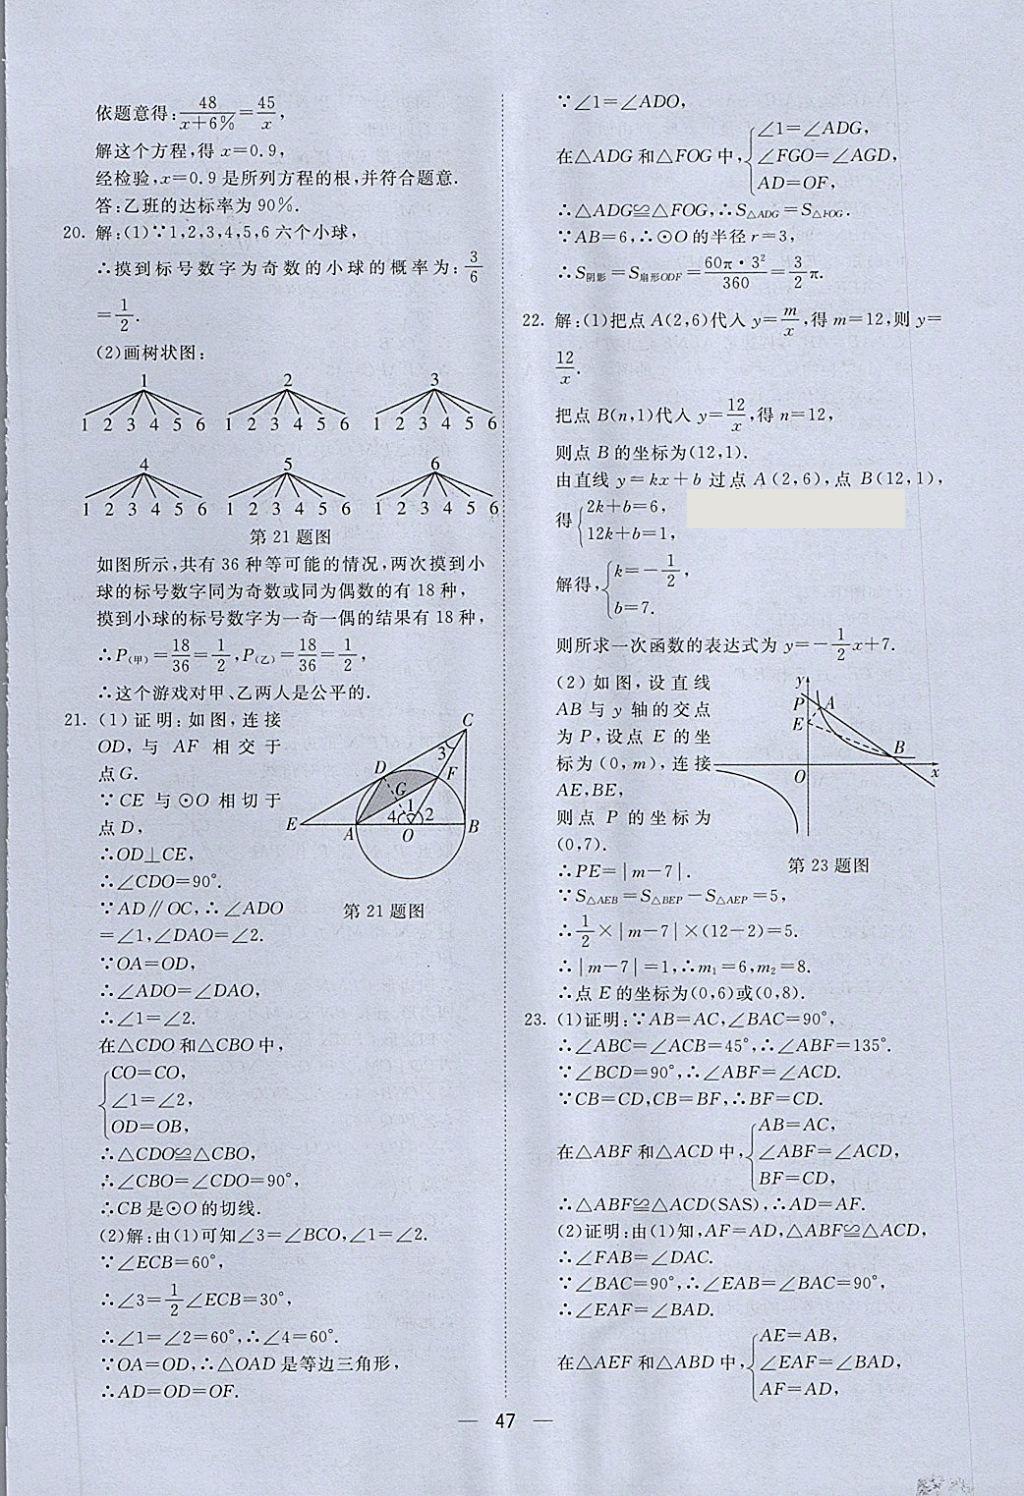 依题意得:48/(x+6%)=45/x,
解这个方程,得 x=0.9,
经检验,x=0.9 是所列方程的根,并符合题意.
答:乙班的达标率为 90%.
20. 解:(1)∵1,2,3,4,5,6 六个小球,
∴摸到标号数字为奇数的小球的概率为:3/6
=1/2.
(2)画树状图:
1 2 3
1 2 3 4 5 6 1 2 3 4 5 6 1 2 3 4 5 6
4 5 6
1 2 3 4 5 6 1 2 3 4 5 6 1 2 3 4 5 6
第 21 题图
如图所示,共有 36 种等可能的情况,两次摸到小
球的标号数字同为奇数或同为偶数的有 18 种,
摸到小球的标号数字为一奇一偶的结果有 18 种,
∴P(甲)=18/36=1/2,P(乙)=18/36=1/2,
∴这个游戏对甲、乙两人是公平的.
21. (1)证明:如图,连接
OD,与 AF 相交于
点G.
∵CE 与⊙O 相切于
点 D,
∴OD⊥CE,
∴∠CDO=90°.
∵AD∥OC,∴∠ADO
=∠1,∠DAO=∠2.
∵OA=OD,
∴∠ADO=∠DAO,
∴∠1=∠2.
在△CDO 和△CBO 中,
CO=CO,
∠1=∠2,
OD=OB,
∴△CDO≌△CBO,
∴∠CBO=∠CDO=90°,
∴CB 是⊙O 的切线.
(2)解:由(1)可知∠3=∠BCO,∠1=∠2.
∵∠ECB=60°,
∴∠3=1/2∠ECB=30°,
∴∠1=∠2=60°,∴∠4=60°.
∵OA=OD,∴△OAD 是等边三角形,
∴AD=OD=OF.
C
3
D
F
G
1
4 2
E
A
O
B
第 21 题图
∵∠1=∠ADO,
在△ADG 和△FOG 中,
∠1=∠ADG,
∠FGO=∠AGD,
AD=OF,
∴△ADG≌△FOG,∴S△ADG=S△FOG.
∵AB=6,∴⊙O 的半径 r=3,
∴S阴影=S扇形ODF=60π·3²/360=3/2π.
22. 解:(1)把点 A(2,6)代入 y=m/x,得 m=12,则 y=
12/x.
把点 B(n,1)代入 y=12/x,得 n=12,
则点 B 的坐标为(12,1).
由直线 y=kx+b 过点 A(2,6),点 B(12,1),
得
2k+b=6,
12k+b=1,
解得,
k=-1/2,
b=7.
则所求一次函数的表达式为 y=-1/2x+7.
(2)如图,设直线
AB 与 y 轴的交点
为 P,设点 E 的坐
标为(0,m),连接
AE,BE,
则点 P 的坐标为
(0,7).
∴PE=|m-7|.
∵S△AEB=S△BEP-S△AEP=5,
∴1/2×|m-7|×(12-2)=5.
∴|m-7|=1,∴m₁=6,m₂=8.
∴点 E 的坐标为(0,6)或(0,8).
y
P
A
E
B
O
x
第 23 题图
23. (1)证明:∵AB=AC,∠BAC=90°,
∴∠ABC=∠ACB=45°,∴∠ABF=135°.
∵∠BCD=90°,∴∠ABF=∠ACD.
∵CB=CD,CB=BF,∴BF=CD.
在△ABF 和△ACD 中,
AB=AC,
∠ABF=∠ACD,
BF=CD,
∴△ABF≌△ACD(SAS),∴AD=AF.
(2)证明:由(1)知,AF=AD,△ABF≌△ACD,
∴∠FAB=∠DAC.
∵∠BAC=90°,∴∠EAB=∠BAC=90°,
∴∠EAF=∠BAD.
在△AEF 和△ABD 中,
AE=AB,
∠EAF=∠BAD,
AF=AD,
— 47 —